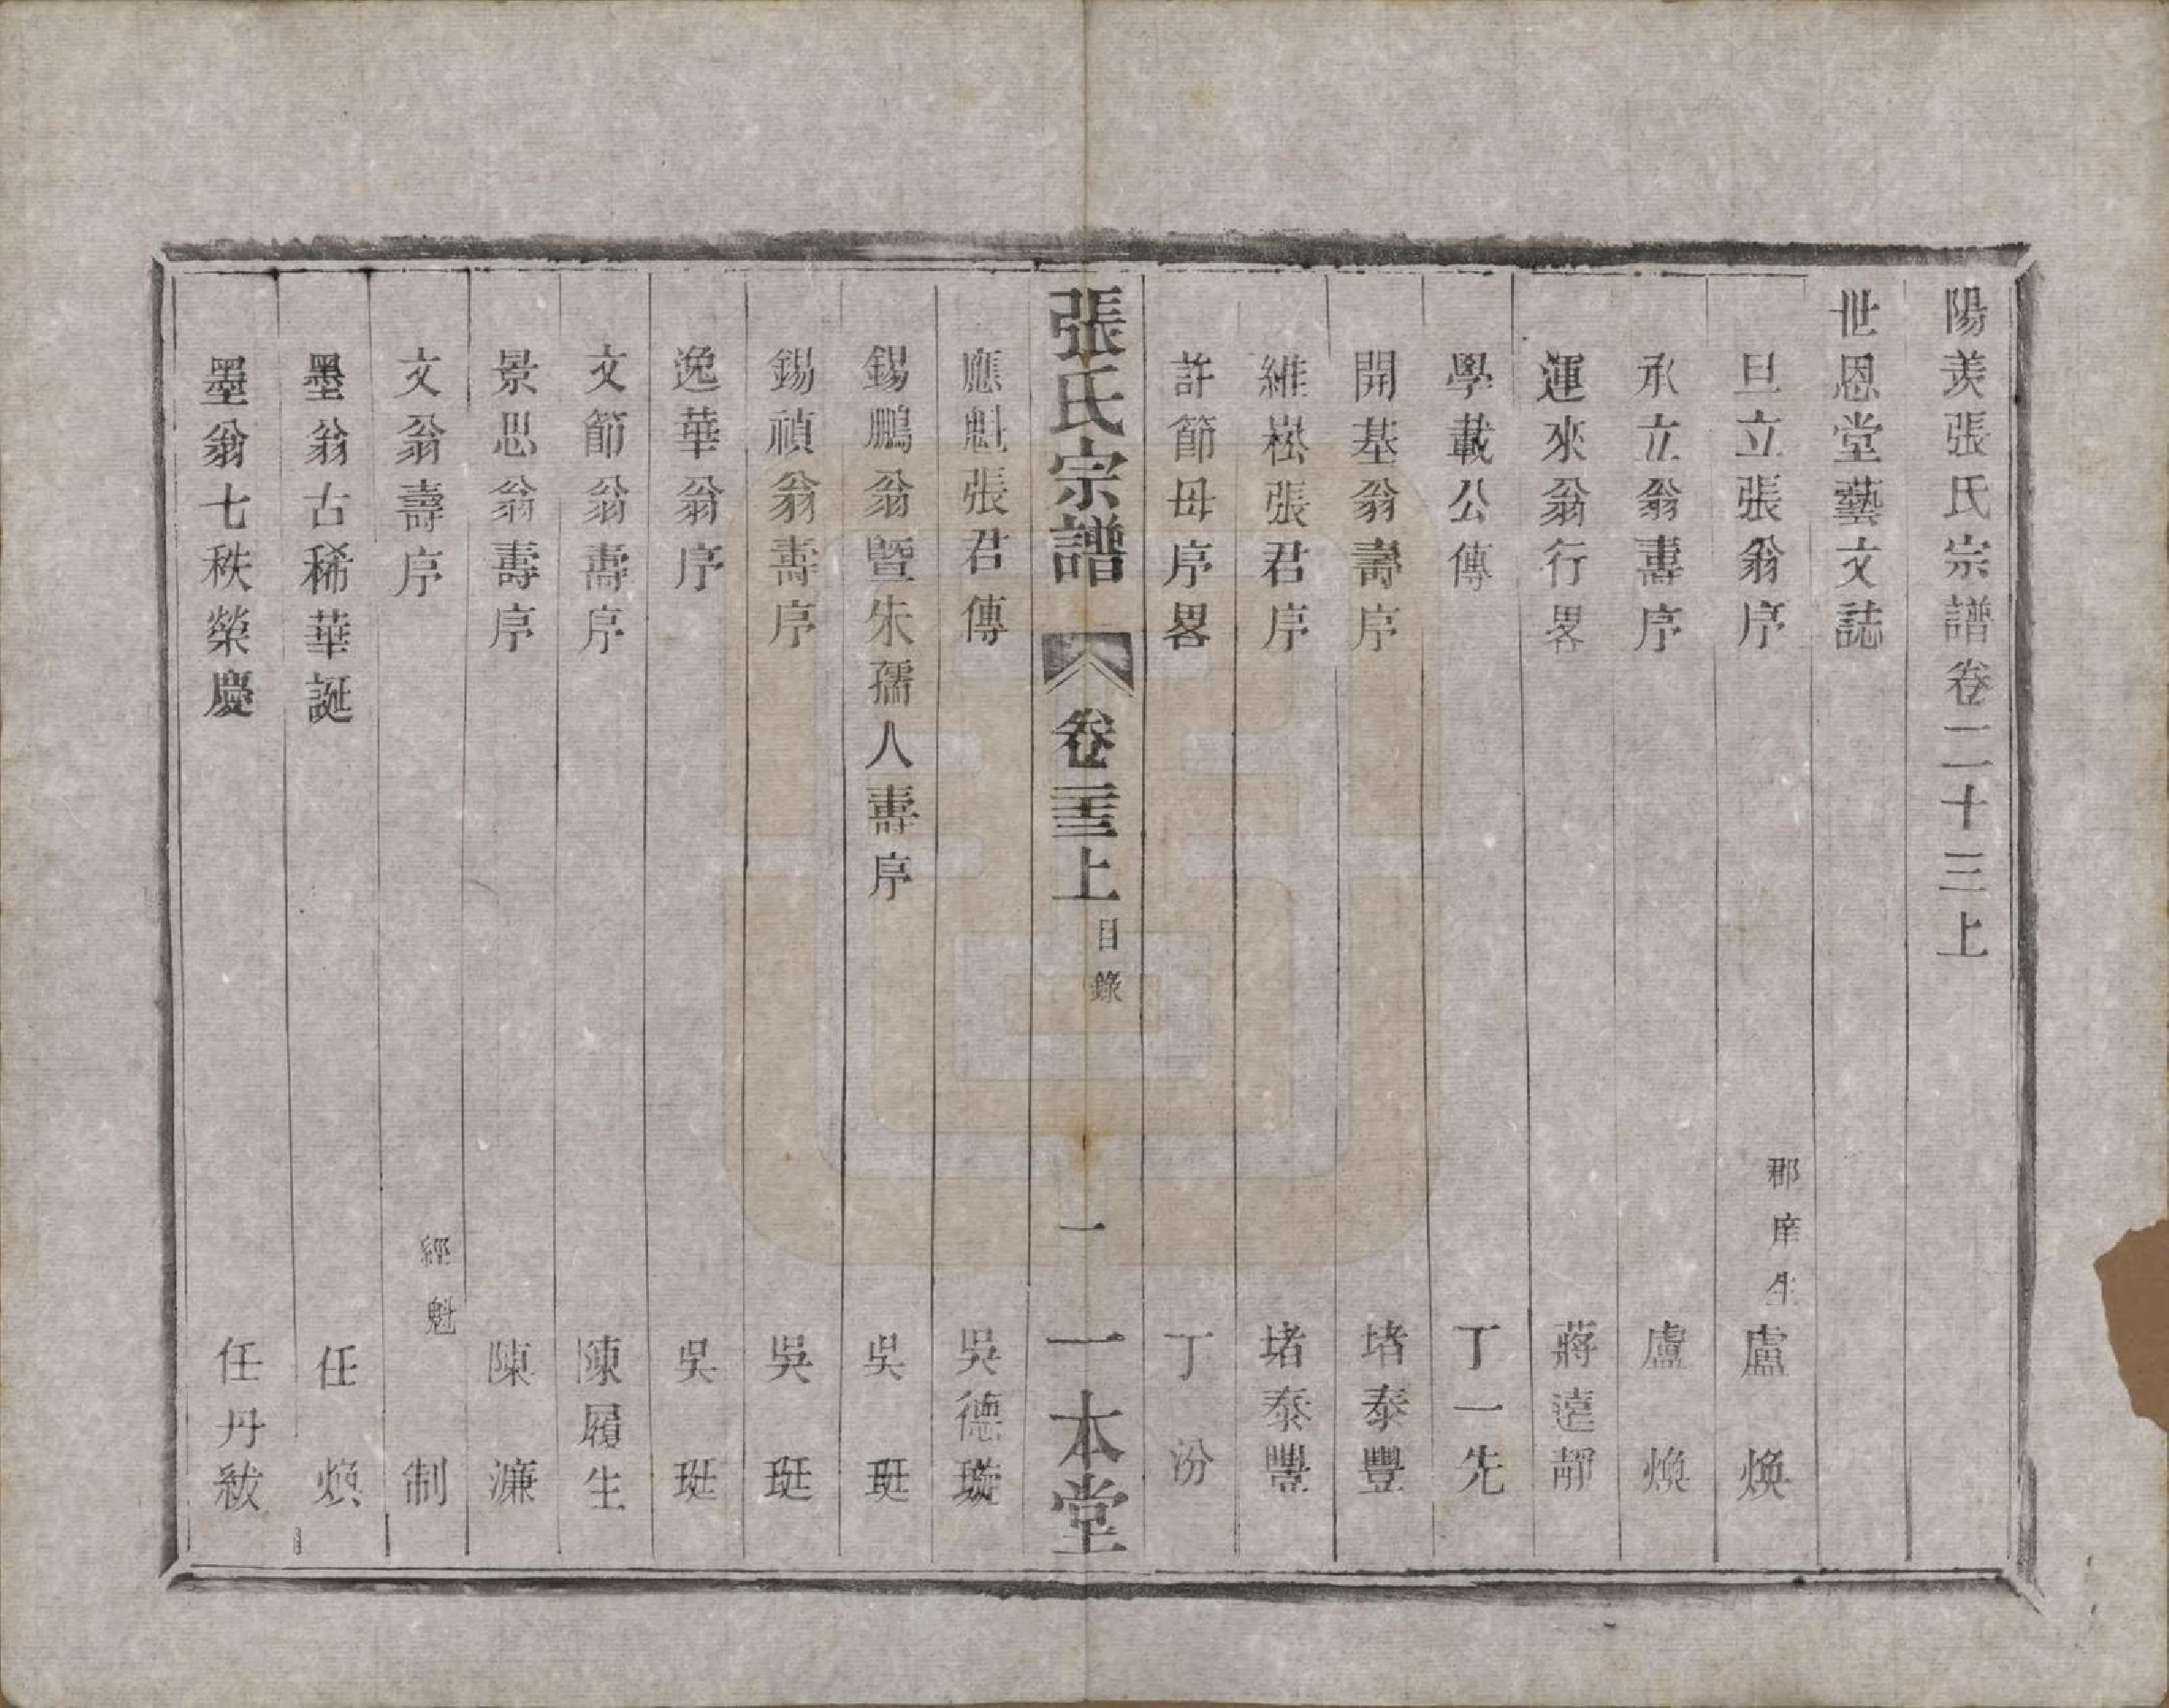 陽羨張氏宗譜卷二十三上
世恩堂藝文誌
旦立張翁序 郡庠生 盧煥
承立翁壽序 盧煥
運來翁行畧 蔣遠靜
學載公傳 丁一先
開基翁壽序 堵泰豐
維崧張君序 堵泰豐
許節母序畧 丁汾
張氏宗譜 卷二十三上 目錄 一 一本堂
應魁張君傳 吳德璇
錫鵬翁暨朱孺人壽序 吳珽
錫禎翁壽序 吳珽
逸華翁序 吳珽
文節翁壽序 陳履生
景思翁壽序 陳濂
文翁壽序 經魁 制
墨翁古稀華誕 任煥
墨翁七秩榮慶 任丹紱